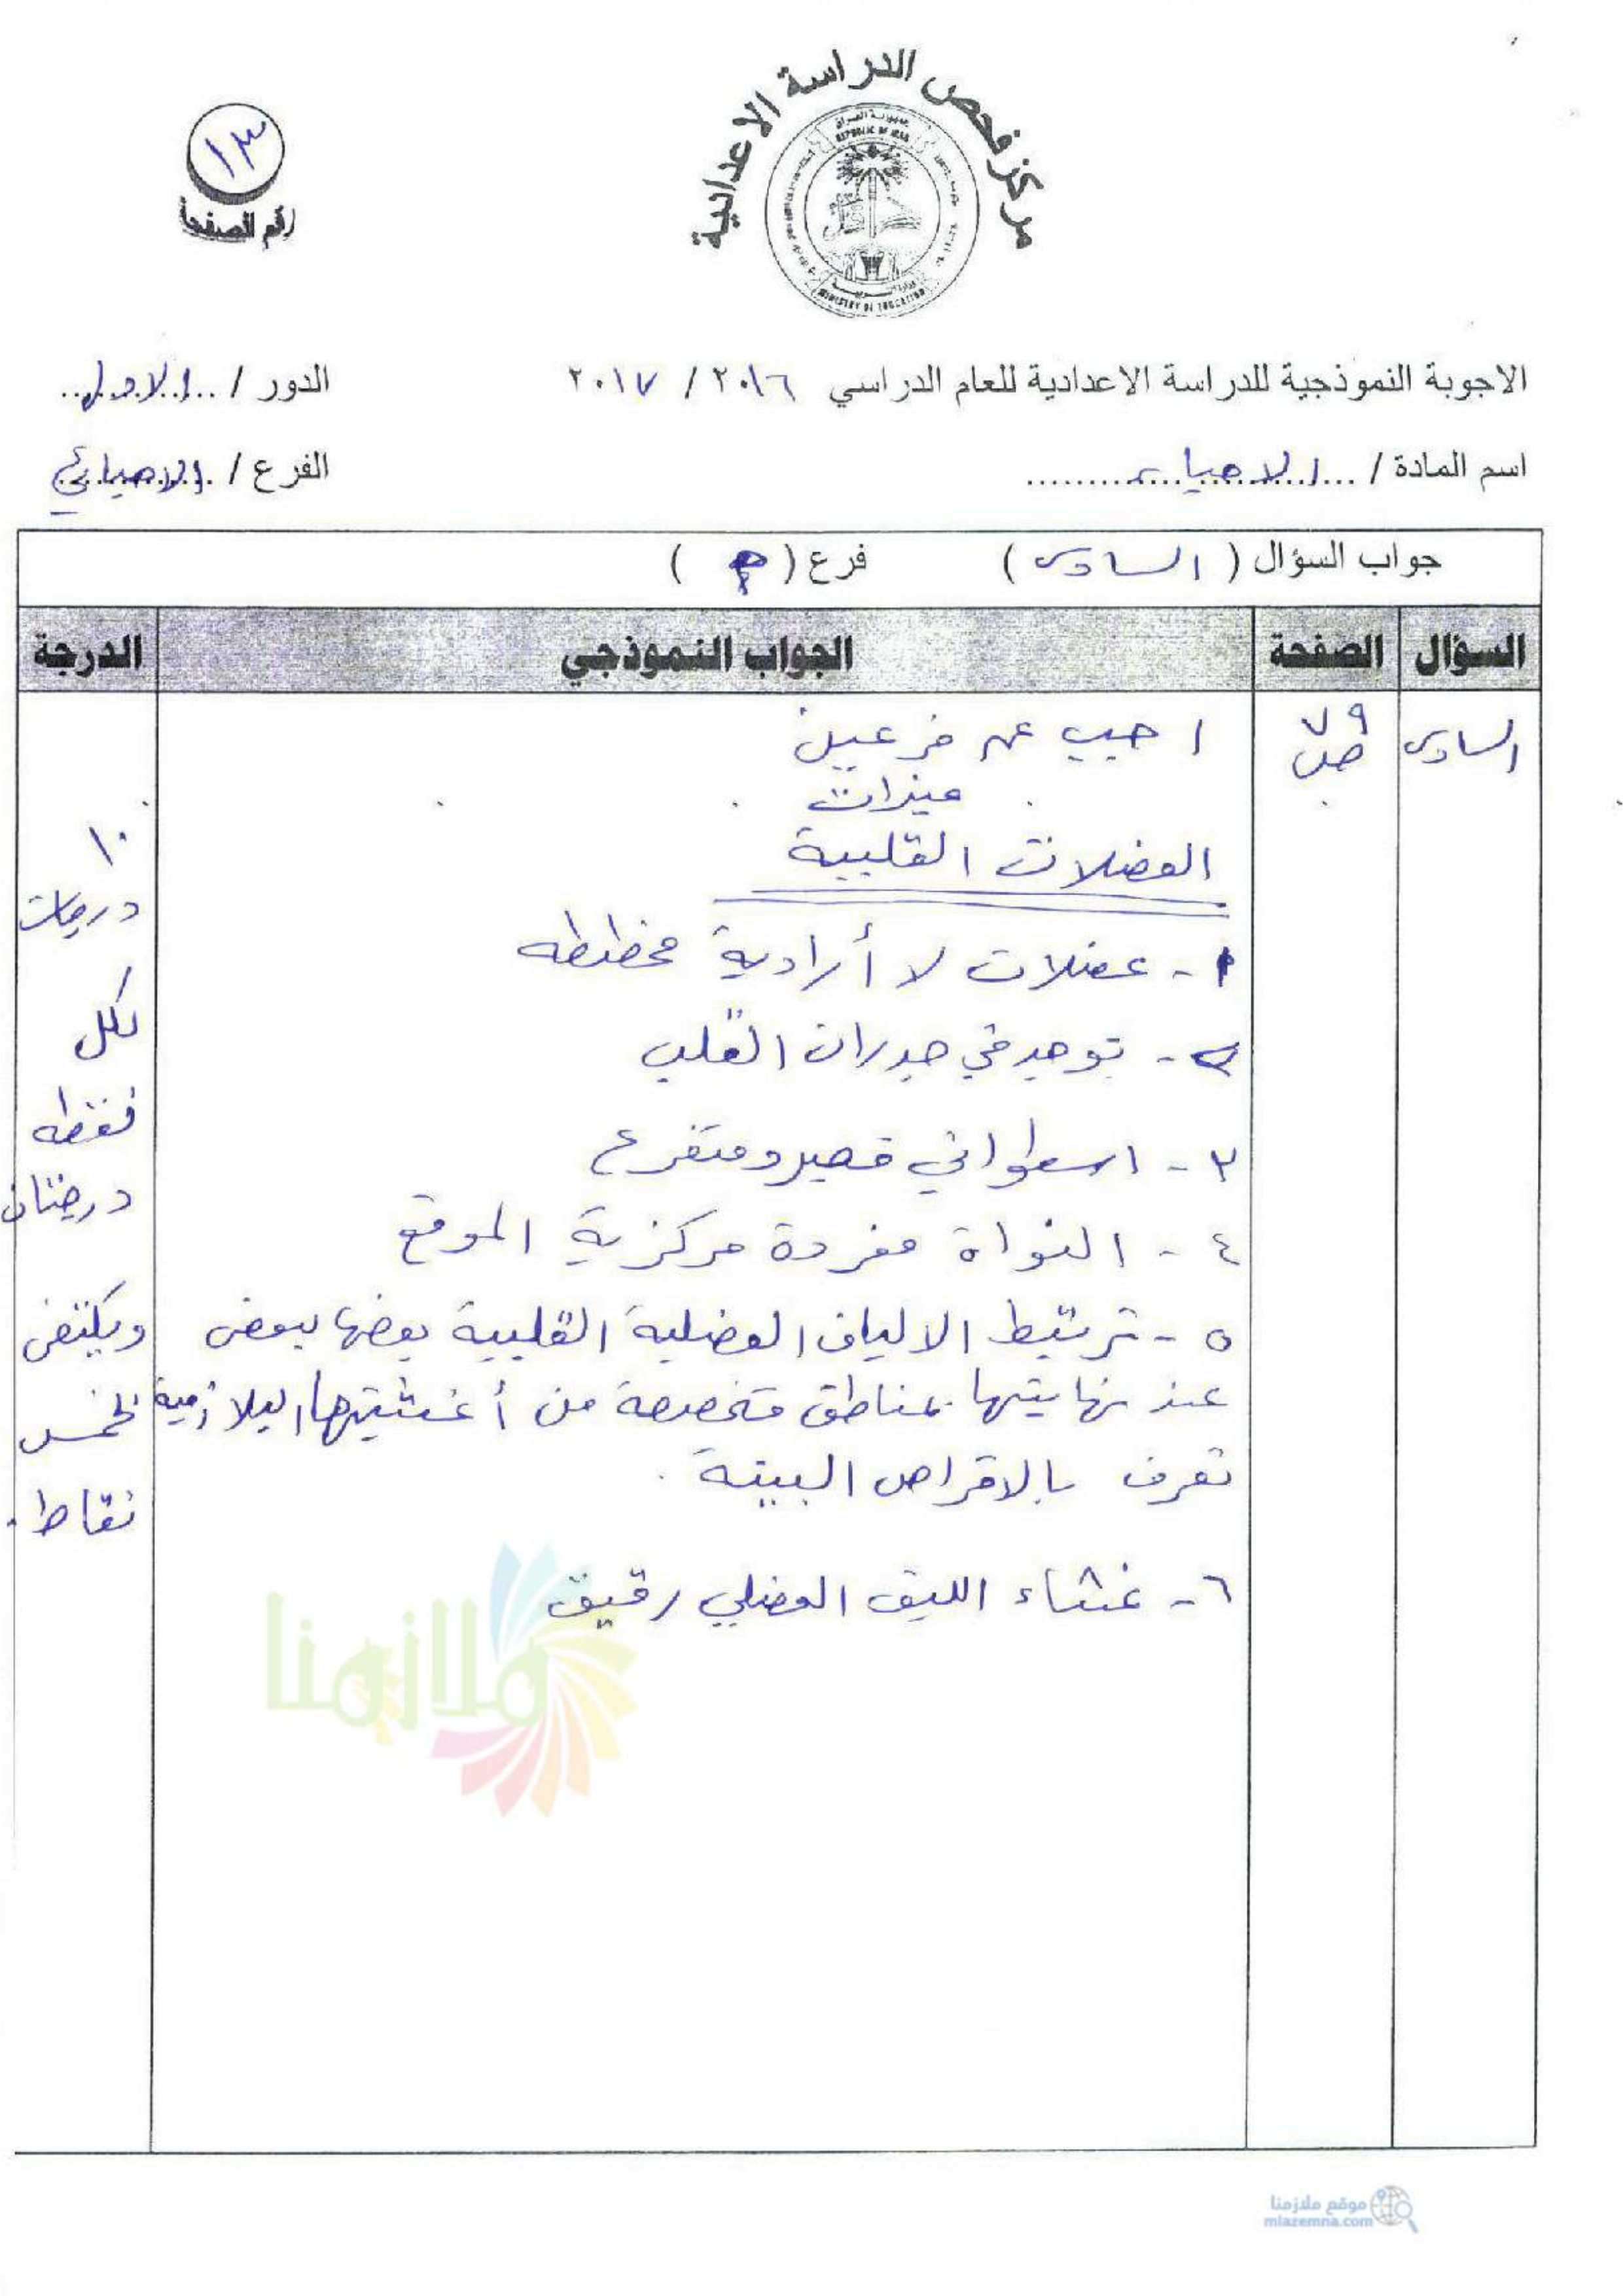 مركز فحص الدراسة الاعدادية
جمهورية العراق
REPUBLIC OF IRAQ
MINISTRY OF EDUCATION
١٣
رقم الصفحة
الاجوبة النموذجية للدراسة الاعدادية للعام الدراسي ٢٠١٦ / ٢٠١٧
الدور / الاول
اسم المادة / الاحياء
الفرع / الاحيائي
جواب السؤال ( السادس ) فرع ( )
السؤال الصفحة الجواب النموذجي الدرجة
السادس
٧٩
ص
اجب عن فرعين
ميزات
العضلات القلبية
١ - عضلات لا أرادية مخططه
٢ - توجد في جدران القلب
٣ - اسطواني قصير ومتفرع
٤ - النواة مفردة مركزية الموقع
٥ - ترتبط الالياف العضلية القلبية بعضها ببعض
عند نهايتها بمناطق متخصصة من أغشيتها البلازمية
تعرف بالاقراص البينة .
٦ - غشاء الليف العضلي رقيق
١٠
درجات
لكل
نقطه
درجتان
ويكتفى
بخمس
نقاط .
ملازمنا
موقع ملازمنا
mlazemna.com